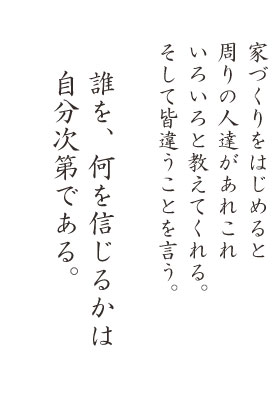 家づくりをはじめると
周りの人達があれこれ
いろいろと教えてくれる。
そして皆違うことを言う。
誰を、何を信じるかは
自分次第である。